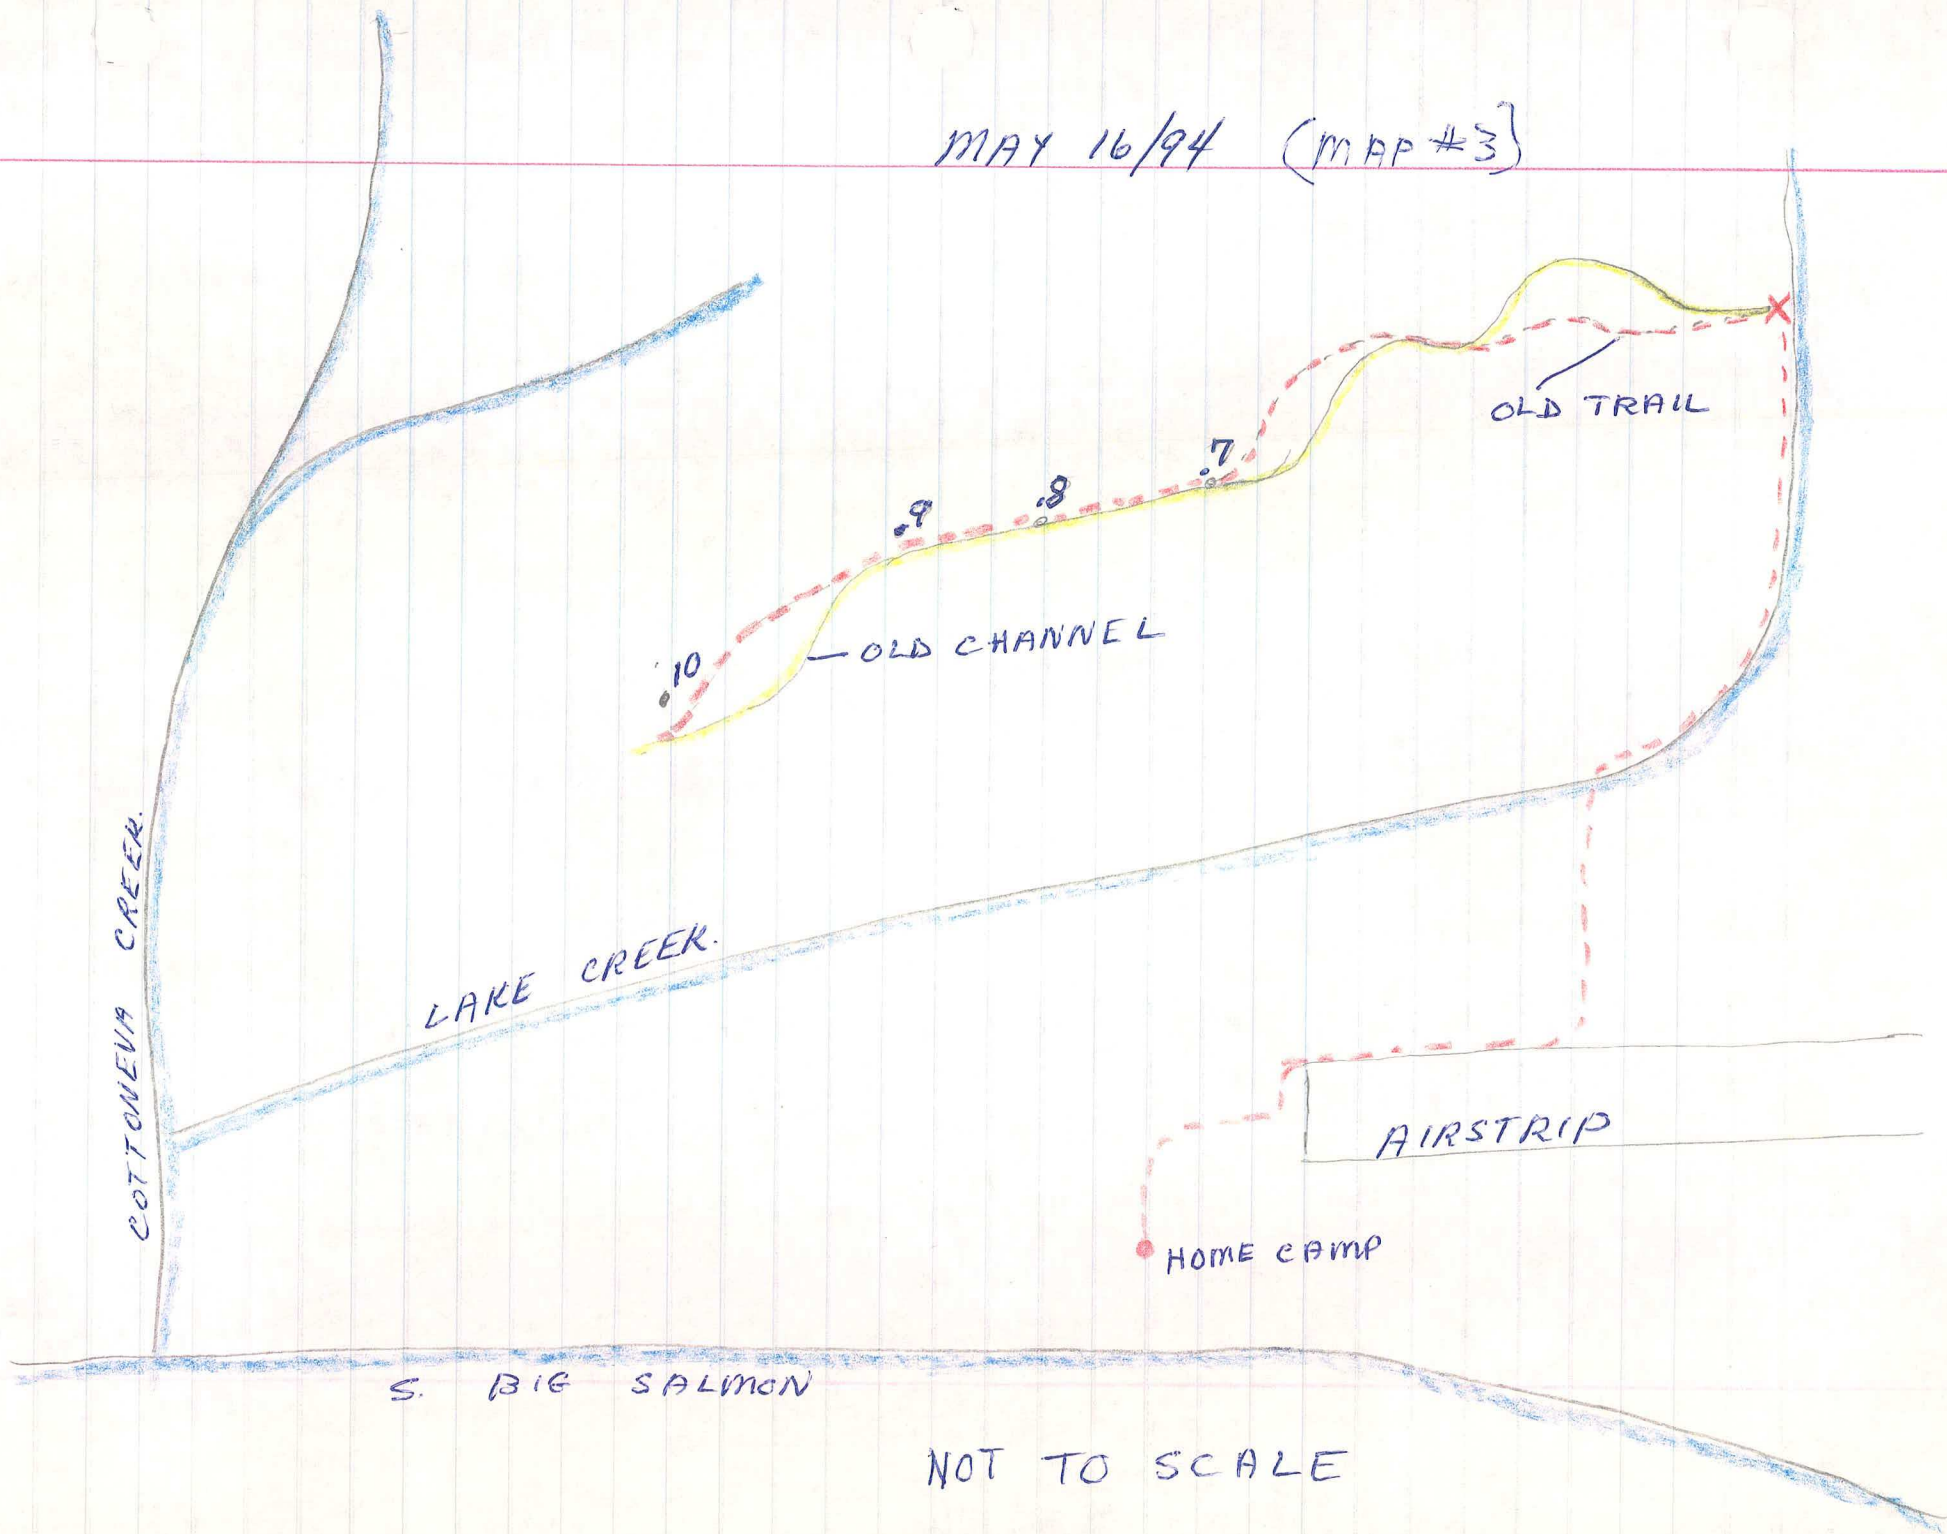 MAY 16/94 (MAP #3)
OLD TRAIL
.7
.8
.9
10
OLD CHANNEL
COTTONEVA CREEK.
LAKE CREEK.
AIRSTRIP
HOME CAMP
S. BIG SALMON
NOT TO SCALE